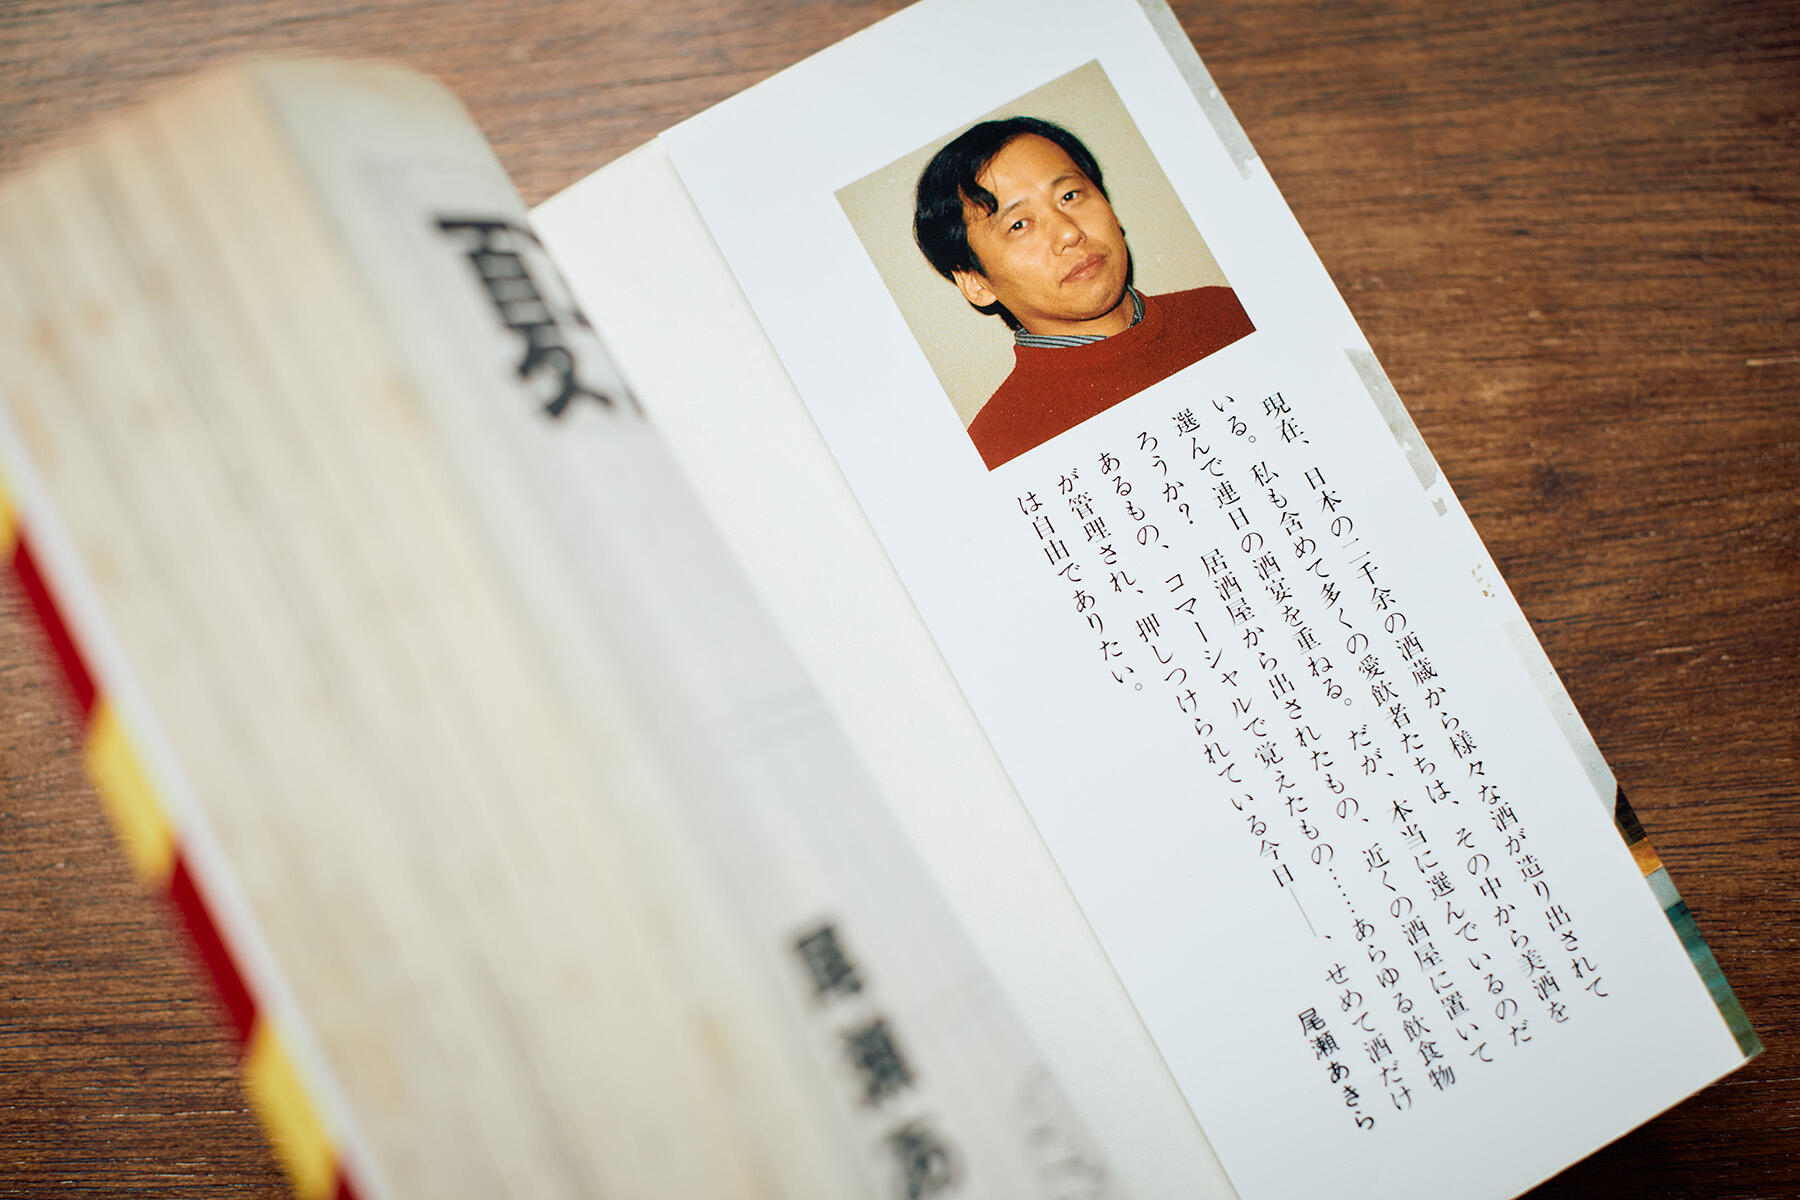 現在、日本の二千余の酒蔵から様々な酒が造り出されて
いる。私も含めて多くの愛飲者たちは、その中から美酒を
選んで連日の酒宴を重ねる。だが、本当に選んでいるのだ
ろうか？　居酒屋から出されたもの、近くの酒屋に置いて
あるもの、コマーシャルで覚えたもの……あらゆる飲食物
が管理され、押しつけられている今日——、せめて酒だけ
は自由でありたい。
尾瀬あきら
夏
尾瀬あ